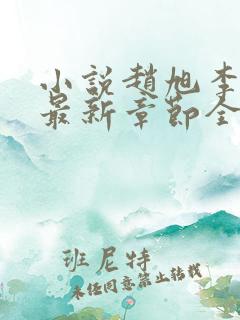 小說趙旭李
最新章節全
班尼特
未经同意禁止转载